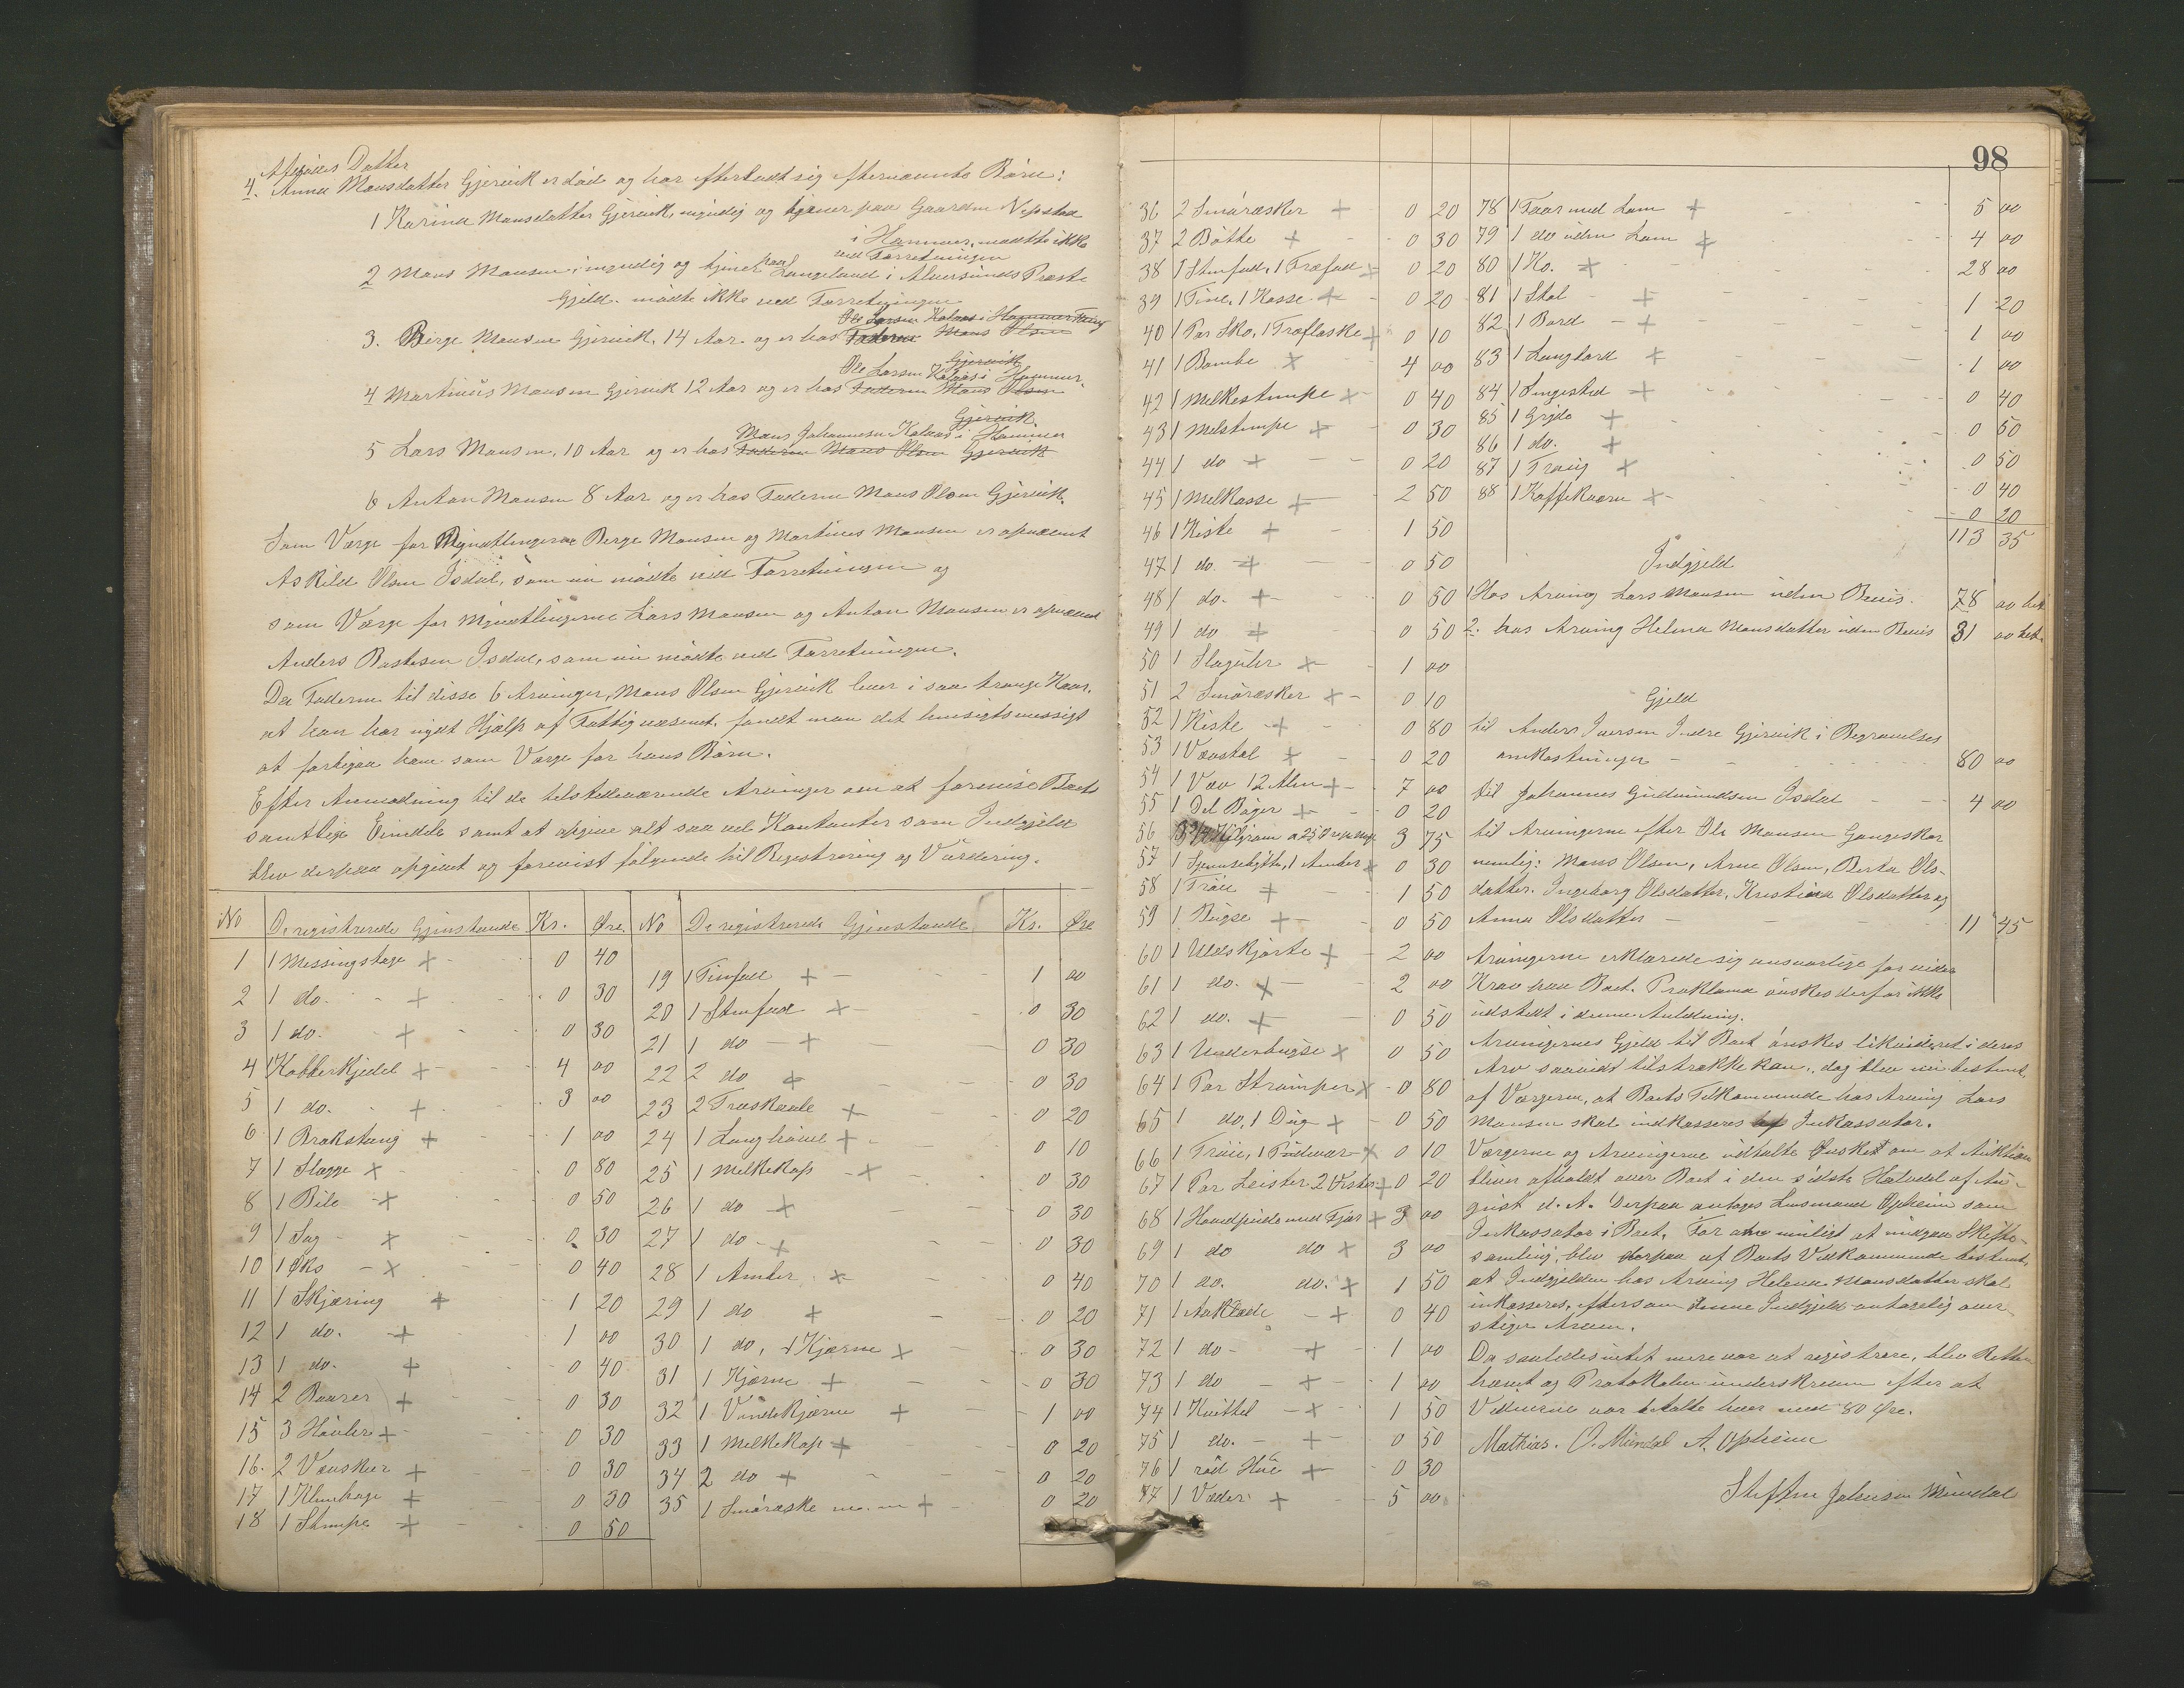 Afgides Datter
4. Anna Mansdatter Gjervik er död og har efterladt sig efternævnte Börn:
1 Karina Mansdatter Gjervik, myndig og tjener paa Gaarden Nepstad
i Hammer, mødte ikke
ved Forretningen
2 Mans Mansen, myndig og tjener paa Langeland i Alversunds Præste
Gjeld. mödte ikke ved Forretningen
Ole Larsen Kalaas i Hammer
3. Berge Mansen Gjervik, 14 Aar og er hos Faderen Mans Olsen
Gjervik
Ole Larsen Kalaas i Hammer.
4 Martinus Mansen Gjervik 12 Aar og er hos Faderen Mans Olsen
Gjervik
Mans Johannesen Kalaas i Hammer
5 Lars Mansen, 10 Aar og er hos Faderen Mans Olsen Gjervik
6 Anton Mansen 8 Aar og er hos Faderen Mans Olsen Gjervik.
Som Værge for Myndtlingerne Berge Mansen og Martines Mansen er opnævnt
Askild Olsen Isdal, som nu mödte ved Forretningen og
som Værge for Myndtlingerne Lars Mansen og Anton Mansen er opnævnt
Anders Bastesen Isdal, som nu mödte ved Forretningen.
Da Faderen til disse 6 Arvinger, Mans Olsen Gjervik lever i saa trange Kaar,
at han har nydt Hjælp af Fattigvæsenet, fandt man det hensigtsmessigt
at forbigaa ham som Værge for hans Börn.
Efter Anmodning til de tilstedeværende Arvinger om at forevise Boets
samtlige Eiendele samt at opgive alt saa vel Kontanter som Indgjeld
blev derpaa opgivet og forevist fölgende til Registrering og Vurdering.
No De registrerede Gjenstande Kr. Øre. No De registrerede Gjenstande Kr. Øre
1 1 Messingstage + 0 40
2 1 do. + 0 30
3 1 do. + 0 30
4 1 Kobberkjedel + 4 00
5 1 do. + 3 00
6 1 Brakstang + 1 00
7 1 Slægge + 0 80
8 1 Bile + 0 50
9 1 Sag + 0 30
10 1 Øks + 0 40
11 1 Skjæring + 1 20
12 1 do. + 1 00
13 1 do. + 0 40
14 2 Baarer + 0 30
15 3 Hövler + 0 30
16. 2 Vævskeer + 0 30
17 1 Klinhage + 0 30
18 1 Stampe + 0 50
19 1 Tinfad + 1 00
20 1 Stenfad + 0 30
21 1 do + 0 30
22 2 do + 0 30
23 2 Træskaale + 0 20
24 1 Langhövel + 0 10
25 1 Melkekop + 0 30
26 1 do + 0 30
27 1 do + 0 30
28 1 Amber + 0 40
29 1 do + 0 20
30 1 do, 1 Kjærne + 0 30
31 1 Kjærne + 0 30
32 1 Vandkjærne + 1 00
33 1 Melkekop + 0 20
34 2 do + 0 20
35 1 Smöræske m.m + 0 20
98
36 2 Smöræsker + 0 20
37 2 Bötte + 0 30
38 1 Stenfad, 1 Træfad + 0 20
39 1 Tine, 1 Kasse + 0 20
40 1 Par Sko, 1 Træflaske + 0 10
41 1 Bombe + 4 00
42 1 Melkestampe + 0 40
43 1 Melstampe + 0 30
44 1 do + 0 20
45 1 Melkasse + 2 50
46 1 Kiste + 1 50
47 1 do + 0 50
48 1 do. + 0 50
49 1 do + 0 50
50 1 Slaguhr + 1 00
51 2 Smöræsker + 0 10
52 1 Kiste + 0 80
53 1 Vævstol + 0 20
54 1 Væv 12 Alen + 7 00
55 1 Del Böger + 0 20
56 Kilgram a 25 Øre 3 75
57 1 Spændebötte, 1 Amber + 0 30
58 1 Tröie + 1 50
59 1 Bugse + 0 50
60 1 Uldskjorte + 2 00
61 1 do. + 2 00
62 1 do. + 0 50
63 1 Underbugse + 0 50
64 1 Par Strömper + 0 80
65 1 do, 1 Dug + 0 50
66 1 Tröie, 1 Pudevar + 0 10
67 1 Par Leister 2 Vester + 0 20
68 1 Hovedpude med Fjær + 3 00
69 1 do do + 3 00
70 1 do. do. + 1 50
71 1 Aaklæde + 0 40
72 1 do + 1 00
73 1 do + 1 00
74 1 Kvittel + 1 50
75 1 do. + 0 50
76 1 röd Hue + 0 30
77 1 Væder + 5 00
78 1 Faar med Lam + 5 00
79 1 do uden Lam + 4 00
80 1 Ko. + 28 00
81 1 Stol + 1 20
82 1 Bord + 1 00
83 1 Langbord + 1 00
84 1 Sengested + 0 40
85 1 Gryde + 0 50
86 1 do. + 0 50
87 1 Traug + 0 40
88 1 Kaffekværn + 0 20
113 35
Indgjeld
1 Hos Arving Lars Mansen uden Bevis. 78 00 bet
2. hos Arving Helena Mansdatter uden Bevis 31 00 bet.
Gjeld
til Anders Iversen Indre Gjervik i Begravelses
omkostninger 80 00
til Johannes Gudmundsen Isdal 4 00
til Arvingerne efter Ole Mansen Gangeskar
nemlig: Mans Olsen, Arne Olsen, Berta Ols-
datter, Ingeborg Olsdatter, Kristina Olsdatter og
Anna Olsdatter 11 45
Arvingerne erklærede sig ansvarlige for videre
Krav paa Boet. Proklama önskes derfor ikke
udstedt i denne Anledning.
Arvingernes Gjeld til Boet önskes likvideret i deres
Arv saavidt tilstrække kan, dog blev nu bestemt
af Værgerne, at Boets Tilkommende hos Arving Lars
Mansen skal indkasseres af Inkassator.
Værgerne og Arvingerne udtalte Ønsket om at Auktion
bliver afholdt over Boet i den sidste Halvdel af Au-
gust d. A. Derpaa antages Lensmand Opheim som
Inkassator i Boet. For om muligt at undgaa Skifte-
samling, blev derpaa af Boets Vedkommende bestemt,
at Indgjelden hos Arving Helena Mansdatter skal
inkasseres, eftersom denne Indgjeld antagelig over-
stiger Arven.
Da saaledes intet mere var at registrere, blev Retten
hævet og Protokolen underskreven efter at
Vidnerne var betalte hver med 80 Øre.
Mathias. O. Mundal A. Opheim
Steffen Johnsen Mundal